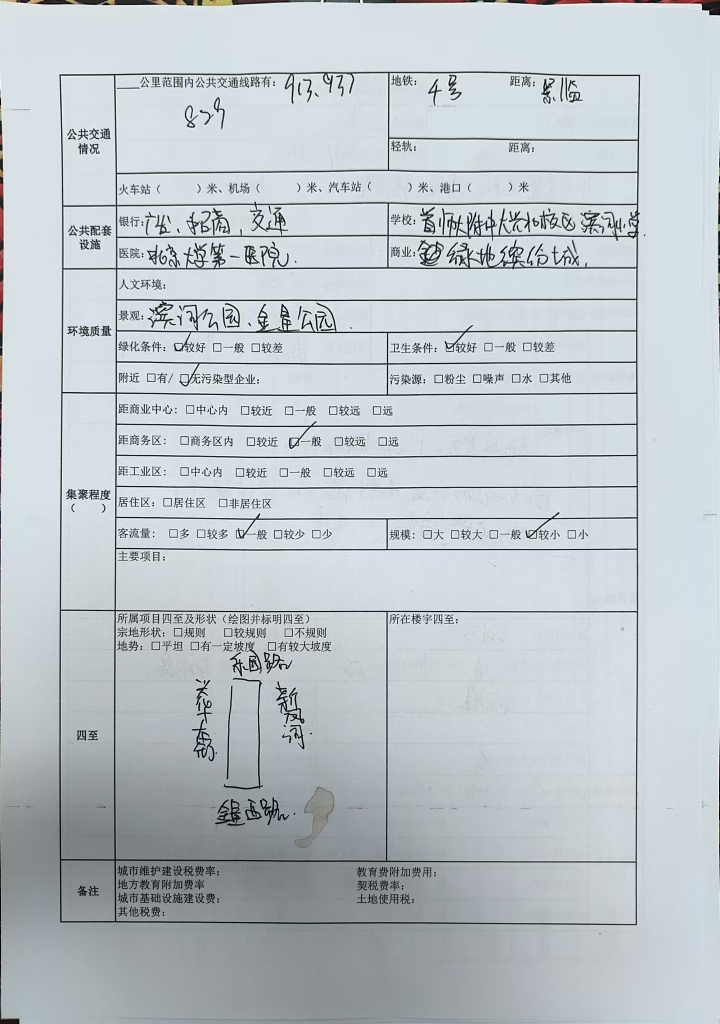 公共交通情况
____公里范围内公共交通线路有：913、937
829
地铁：4号 距离：紧临
轻轨： 距离：
火车站（ ）米、机场（ ）米、汽车站（ ）米、港口（ ）米
公共配套设施
银行：广发、招商、交通
学校：首师大附中大兴北校区 滨河小学.
医院：北京大学第一医院.
商业：绿地缤纷城.
环境质量
人文环境：
景观：滨河公园、金星公园.
绿化条件：☑较好 □一般 □较差
卫生条件：☑较好 □一般 □较差
附近 □有/ ☑无污染型企业：
污染源：□粉尘 □噪声 □水 □其他
集聚程度
（ ）
距商业中心：□中心内 □较近 □一般 □较远 □远
距商务区：□商务区内 □较近 ☑一般 □较远 □远
距工业区：□中心内 □较近 □一般 □较远 □远
居住区：□居住区 □非居住区
客流量：□多 □较多 ☑一般 □较少 □少
规模：□大 □较大 □一般 ☑较小 □小
主要项目：
四至
所属项目四至及形状（绘图并标明四至）
宗地形状：□规则 □较规则 □不规则
地势：□平坦 □有一定坡度 □有较大坡度
所在楼宇四至：
乐园路
新凤河.
金星西路.
备注
城市维护建设税费率：
教育费附加费用：
地方教育附加费率
契税费率；
城市基础设施建设费：
土地使用税：
其他税费：